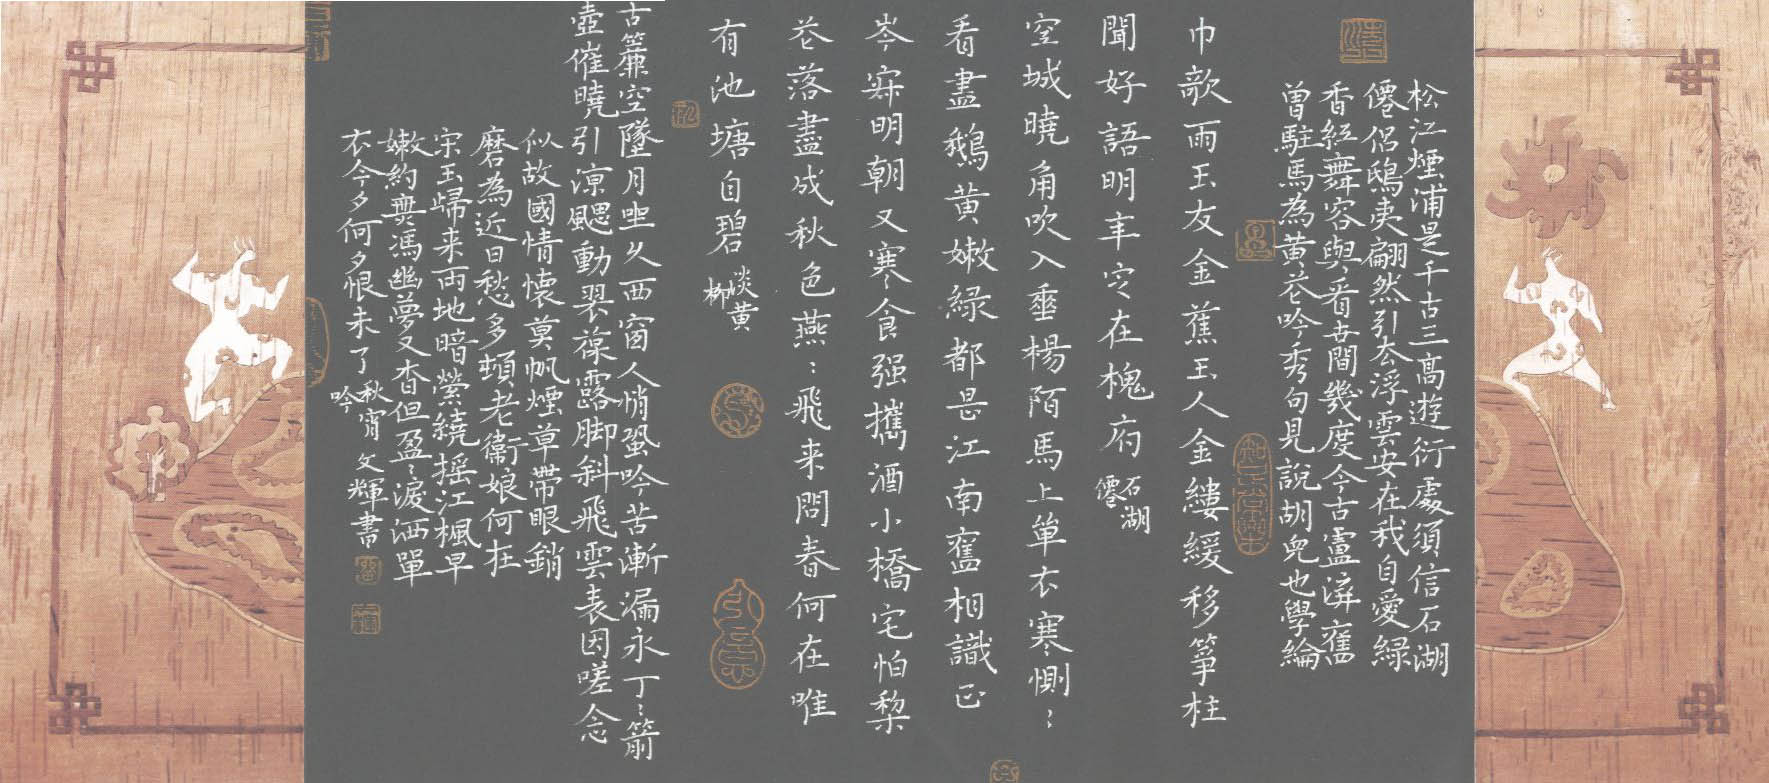 松江煙浦是千古三高遊衍處須信石湖
僊侶鴟夷翩然引去浮雲安在我自愛綠
香紅舞容與看世間幾度今古盧溝舊
曾駐馬為黃花吟秀句見說胡兒也學綸
巾欹雨玉友金蕉玉人金縷緩移箏柱
聞好語明年定在槐府
石湖
僊
空城曉角吹入垂楊陌馬上單衣寒惻:
看盡鵝黃嫩綠都是江南舊相識正
岑寂明朝又寒食强攜酒小橋宅怕梨
花落盡成秋色燕:飛来問春何在唯
有池塘自碧
淡黃
柳
古簾空墜月坐久西窗人悄蛩吟苦漸漏永丁:箭
壺催曉引涼颸動翠葆露脚斜飛雲表因嗟念
似故國情懷莫帆煙草帶眼銷
磨為近日愁多頓老衞娘何在
宋玉歸来兩地暗縈繞摇江楓早
嫩約無馮幽夢又杳但盈:淚洒單
衣今夕何夕恨未了
秋宵
吟
文輝書